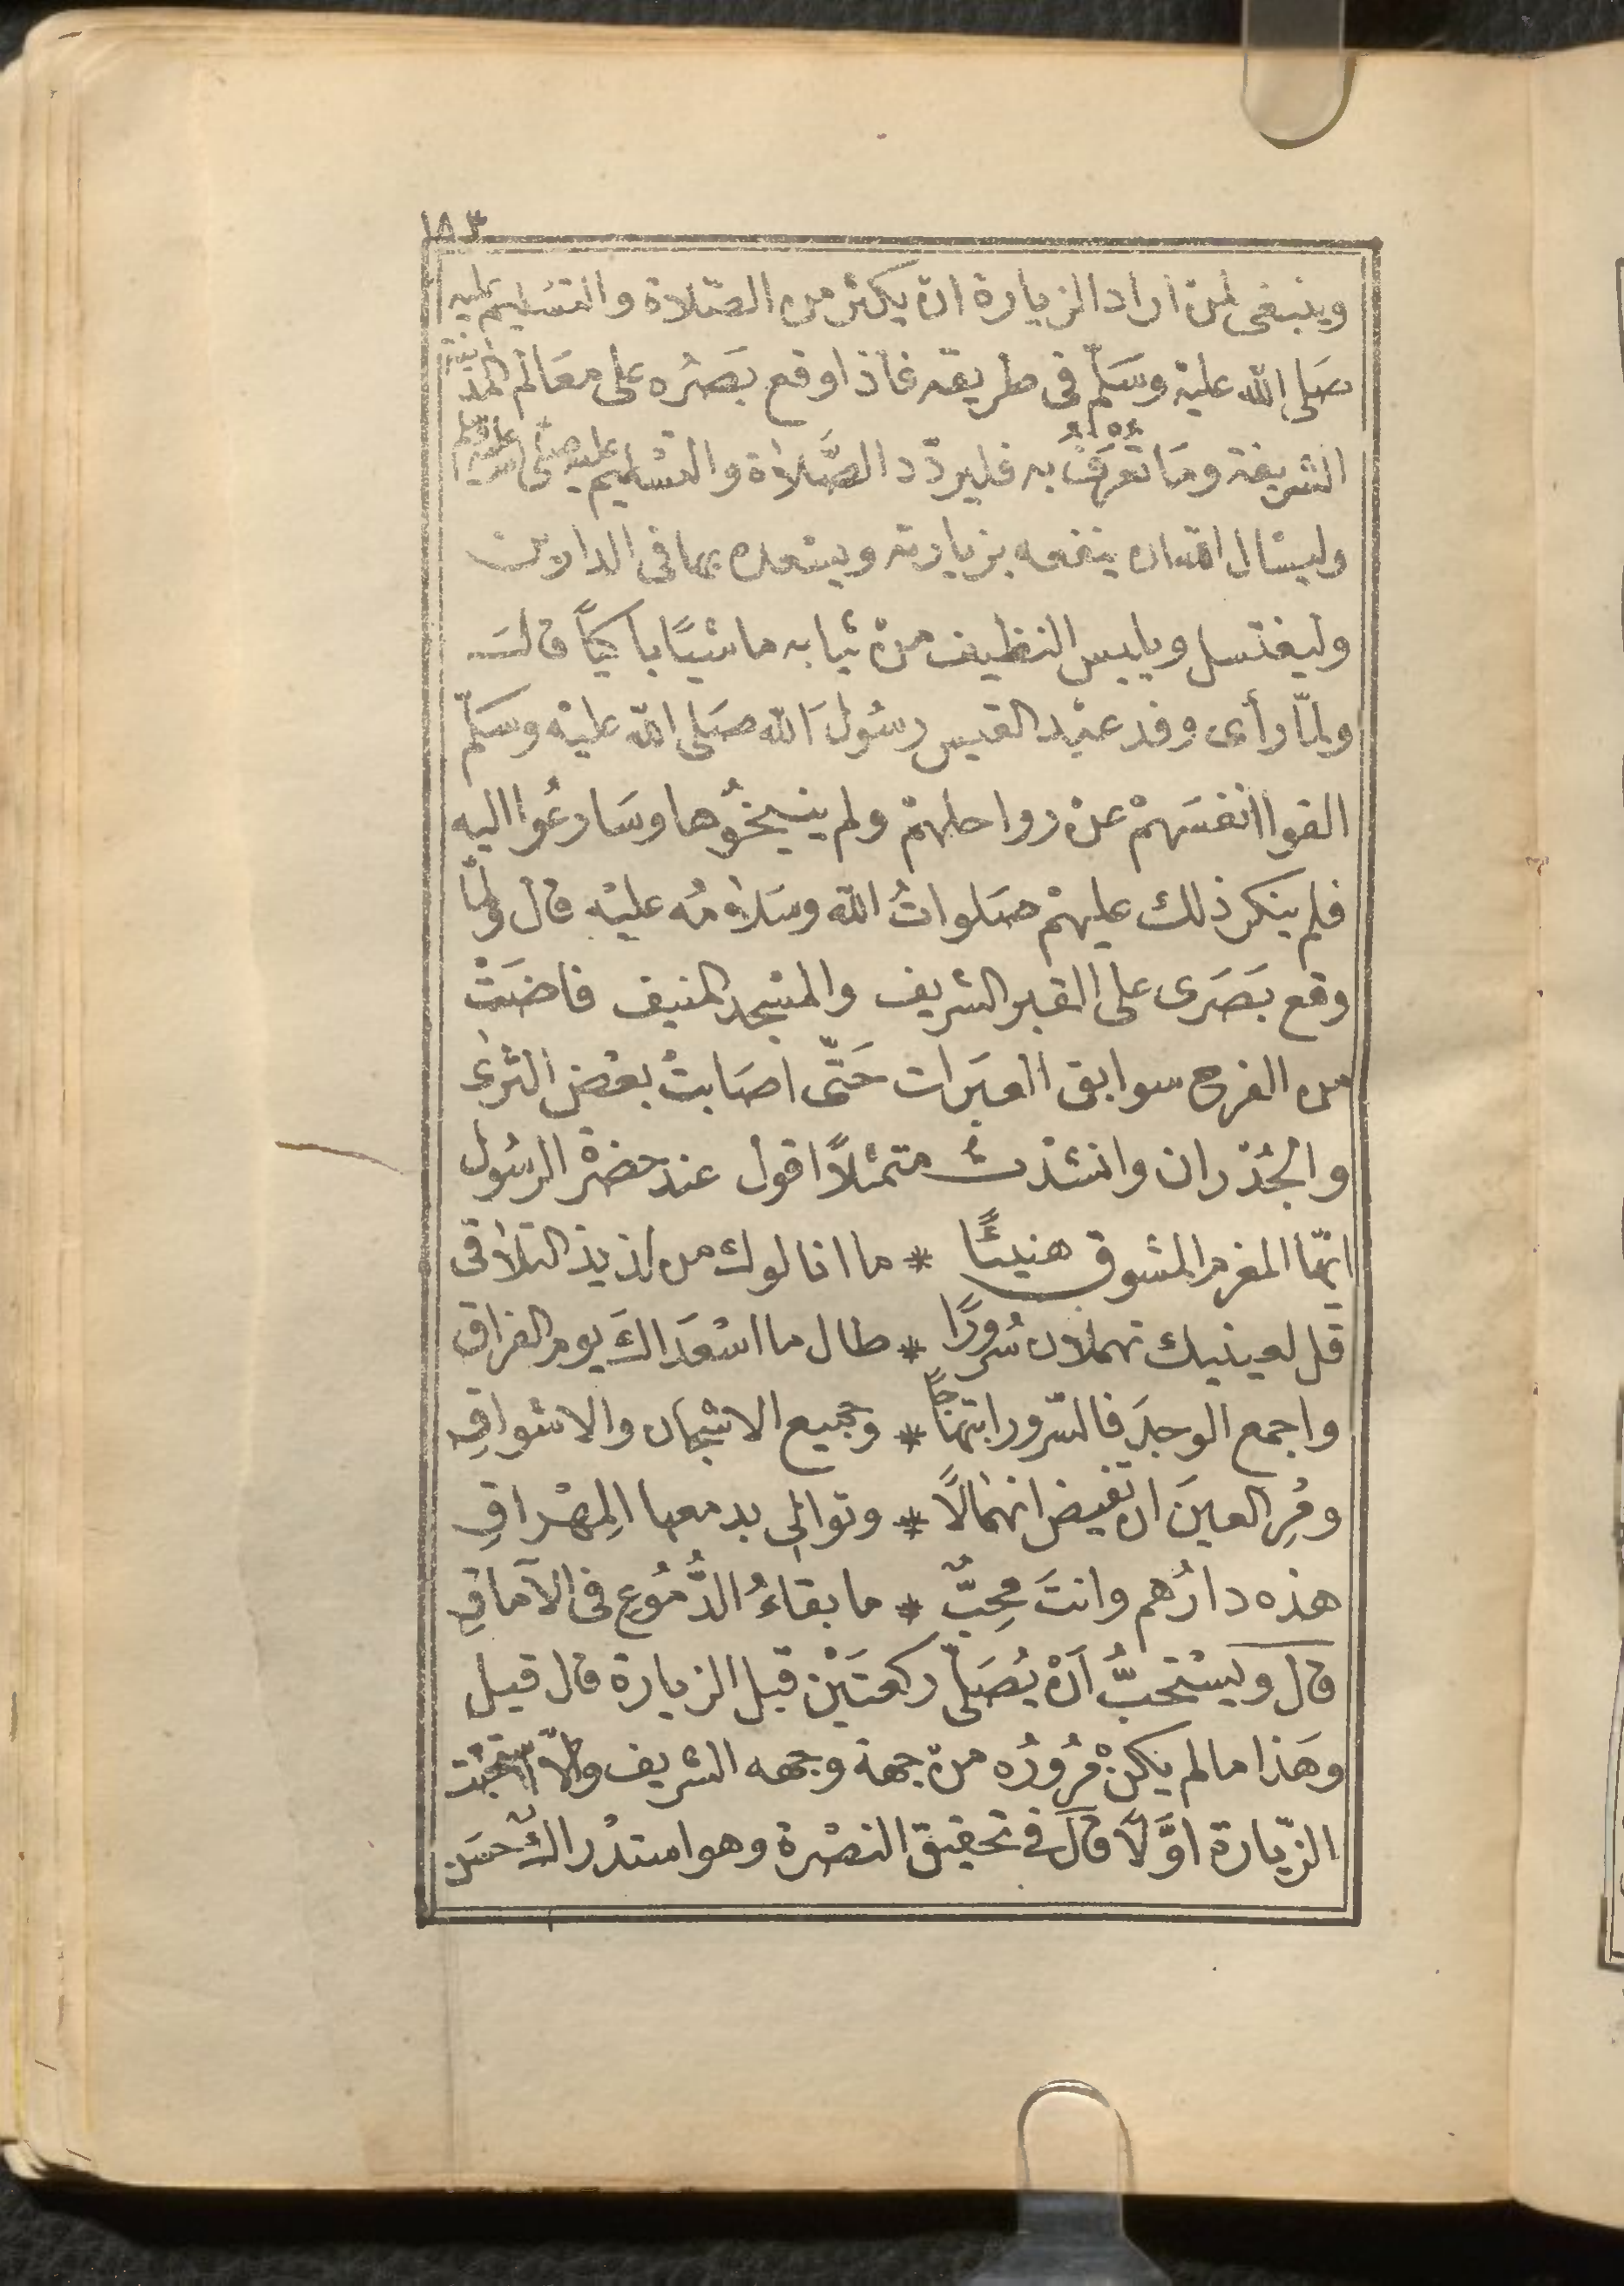 ١٨٣
وينبغى لمن اراد الزيارة ان يكثر من الصّلاة والتسليم عليه
صَلى الله عليْه وسَلمّ فى طريقه فاذا وقع بَصَرُه على معَالم المدينة
الشريفة ومَا تُعْرَفُ به فليردّد الصَّلاة والتسْليم عليه صلى الله عليه وسلم
وليسْال الله ان ينفعه بزيارته ويسْعده بها فى الدارين
وليغتسل ويلبس النظيف منْ ثيابه ماشيًا باكيًا قال
ولمّا رأى وفد عبْد القيس رسُولَ الله صَلى الله عليْه وسَلمّ
القوا انفسَهمْ عنْ رواحلهمْ ولم ينيخُوها وسَارعُوا اليه
فلم ينكر ذلك عليهمْ صَلواتُ الله وسَلامُه عليْه قال ولمّا
وقع بَصَرى على القبر الشريف والمسْجد المنيف فاضَتْ
من الفرح سوابق العبَرات حَتّى اصَابتْ بعْض الثرى
والجُدْران وانشدْتُ متمثلاً اقول عند حضرْة الرسُول
ايّها المغرم المشوق هنيئًا * ما انالوك من لذيذ التلاقى
قل لعينيك تهملان سُرورًا * طال ما اسْعَداكَ يوم الفراق
واجمع الوجدَ فالسّرور ابتهاجًا * وجميع الاشجان والاشواقِ
ومُرِ العينَ ان تفيض انهمَالًا * وتوالى بدمعها المِهْراقِ
هذه دارُهم وانتَ مُحِبٌّ * ما بقاءُ الدُّمُوعِ فى الآماقِ
قال ويسْتحبُّ اَنْ يُصَلى ركعتَيْن قبل الزيارة قال قيل
وهَذا ما لم يكنْ مُرُورُه منْ جهة وجهه الشريف والاّ استحبّت
الزّيارة اوَّلًا قالَ فى تحقيق النصْرة وهو استدْراكٌ حسَن